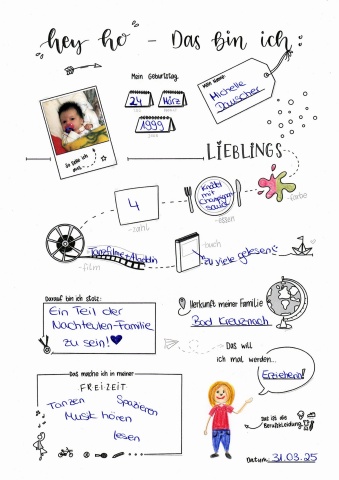 hey ho - Das bin ich:
Mein Geburtstag
24 März
1999
Mein Name:
Michelle
So sehe ich
aus
LIEBLINGS-
4
-zahl
Knödel
mit
Champignon
sauce
-essen
-farbe
-film
-buch
zu viele gelesen
Darauf bin ich stolz:
Ein Teil der
Nachteulen-Familie
zu sein!
Herkunft meiner Familie
Bad Kreuznach
Das will
ich mal werden...
Erzieherin!
Das mache ich in meiner
FREIZEIT:
Tanzen Spazieren
Musik hören
lesen
Das ist die
Berufskleidung
Datum: 31.03.25